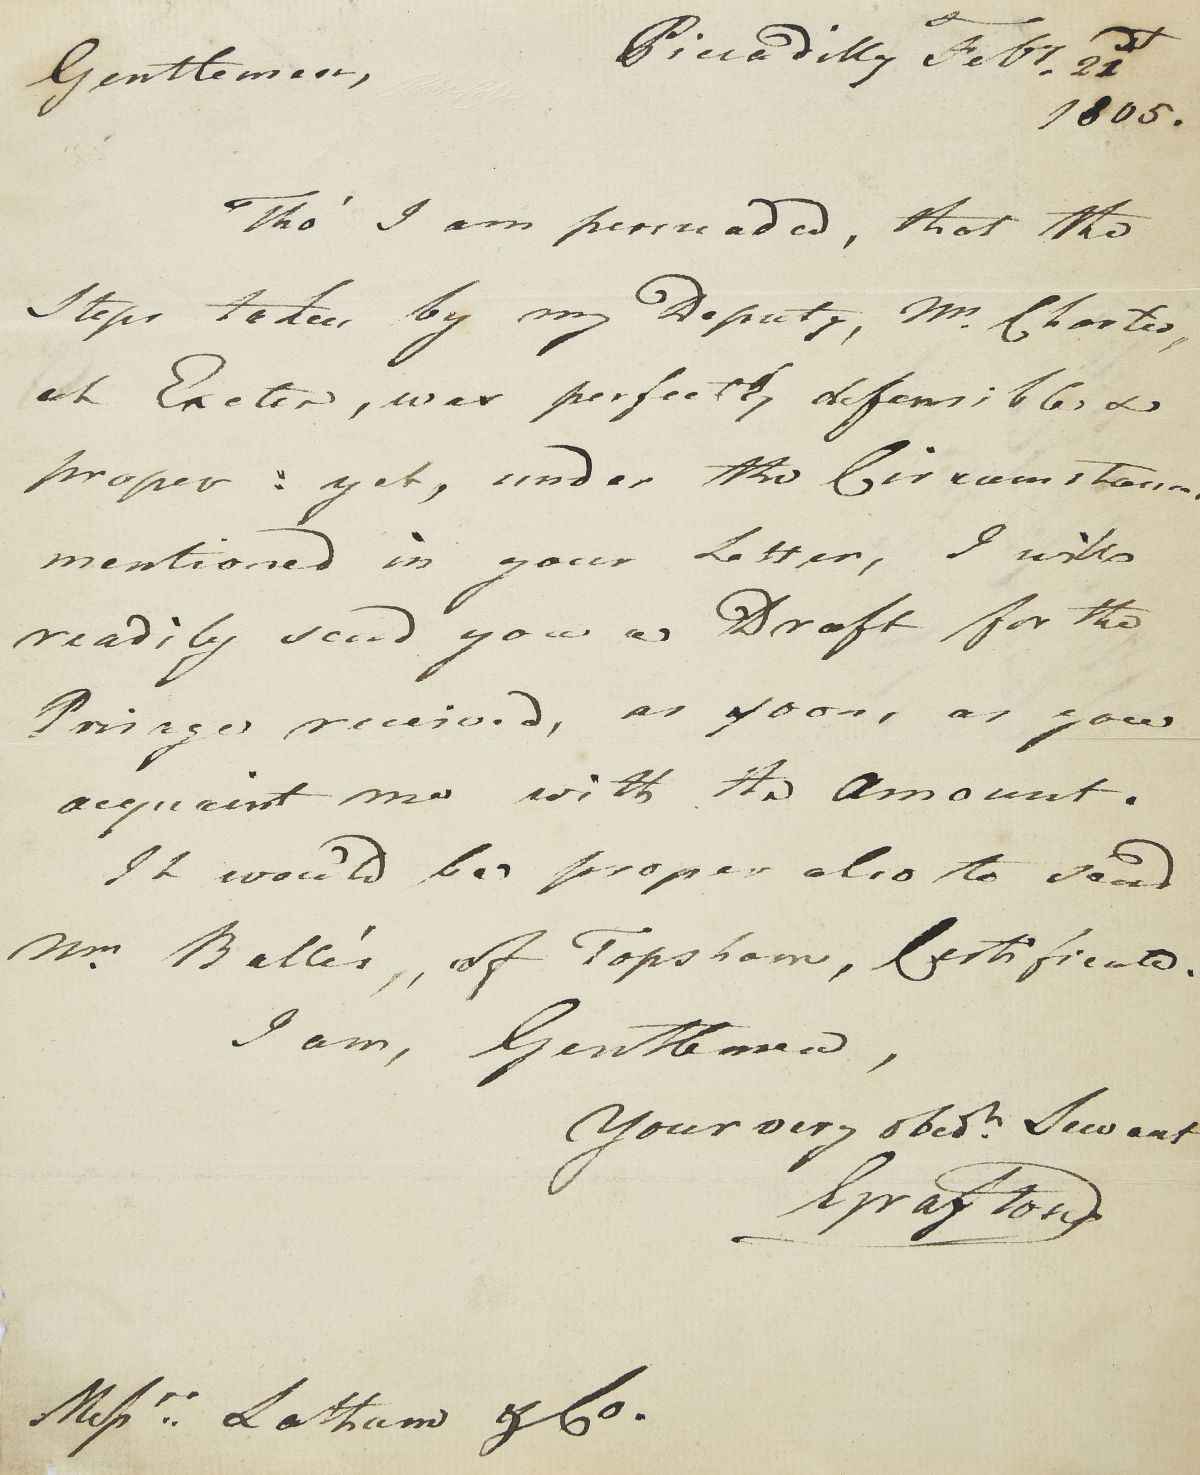 Gentlemen,
Piccadilly Feby. 21st
1805.
Tho' I am persuaded, that the
Steps taken by my Deputy, Mr. Charter,
at Exeter, was perfectly defensible &
proper: yet, under the Circumstances
mentioned in your Letter, I will
readily send you a Draft for the
Prisage received, as soon, as you
acquaint me with the Amount.
It would be proper also to send
Mr. Balle's, of Topsham, Certificate.
I am, Gentlemen,
Your very obedt. Servant
Grafton
Messrs. Latham & Co.